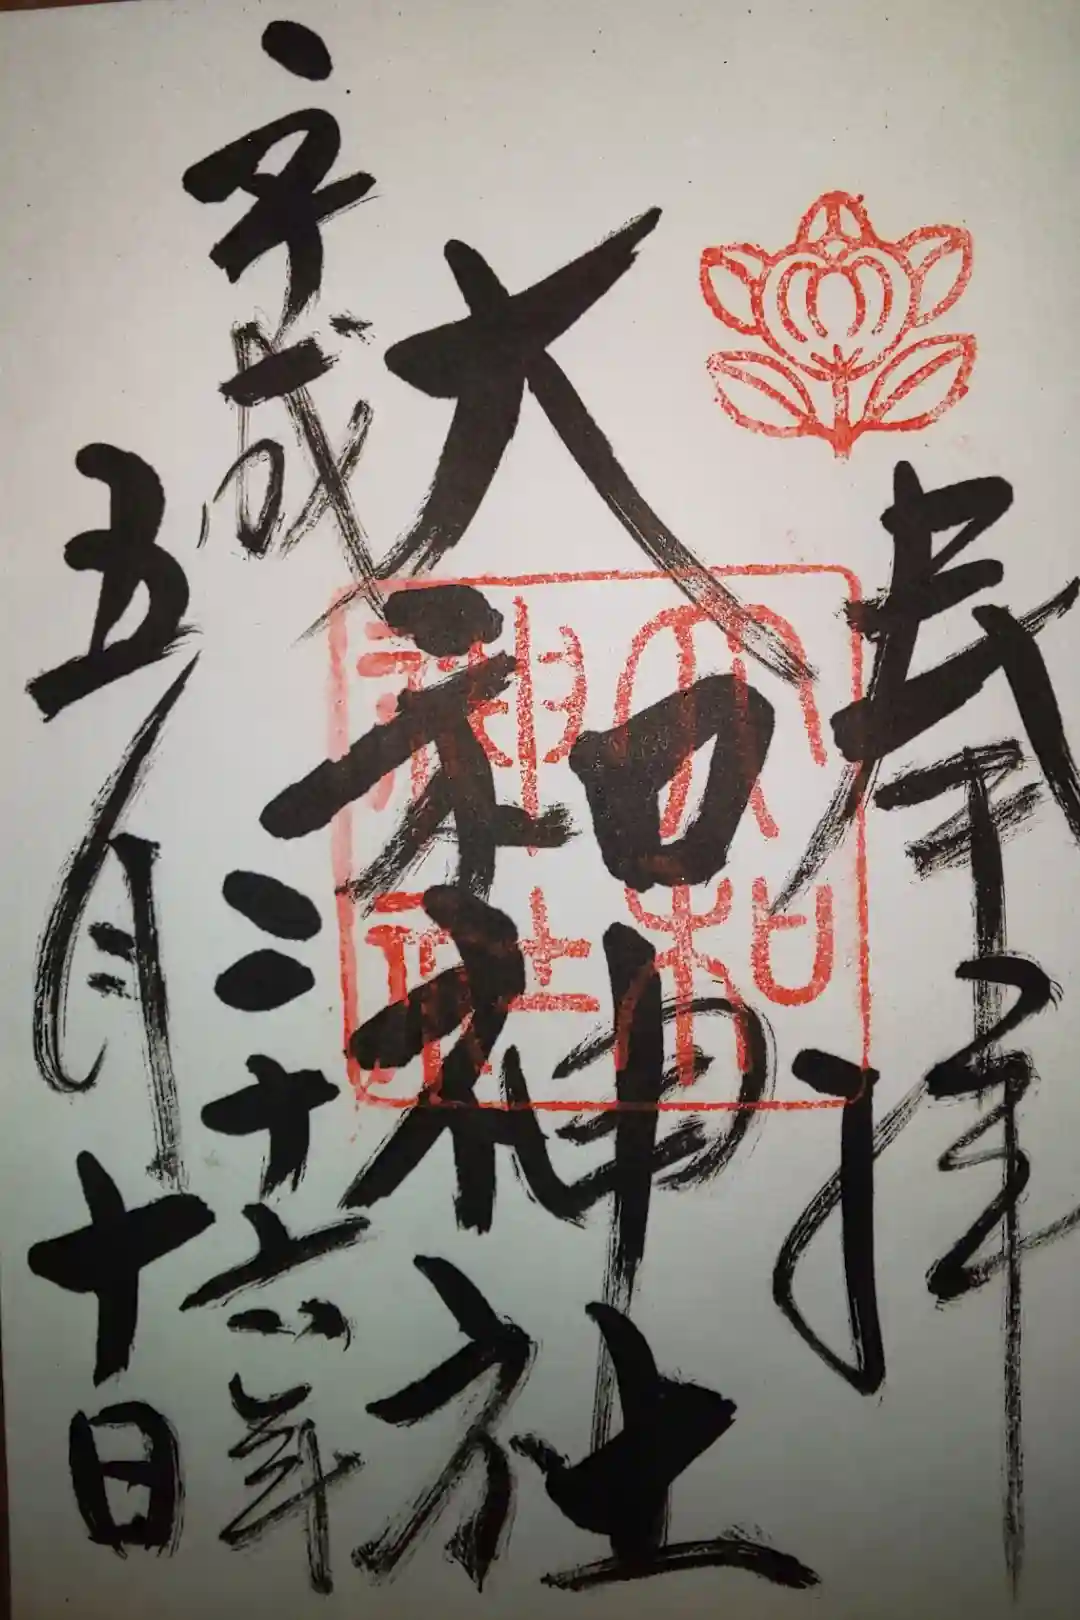 奉拝
大和神社
平成二十六年
五月十日
大和
神社